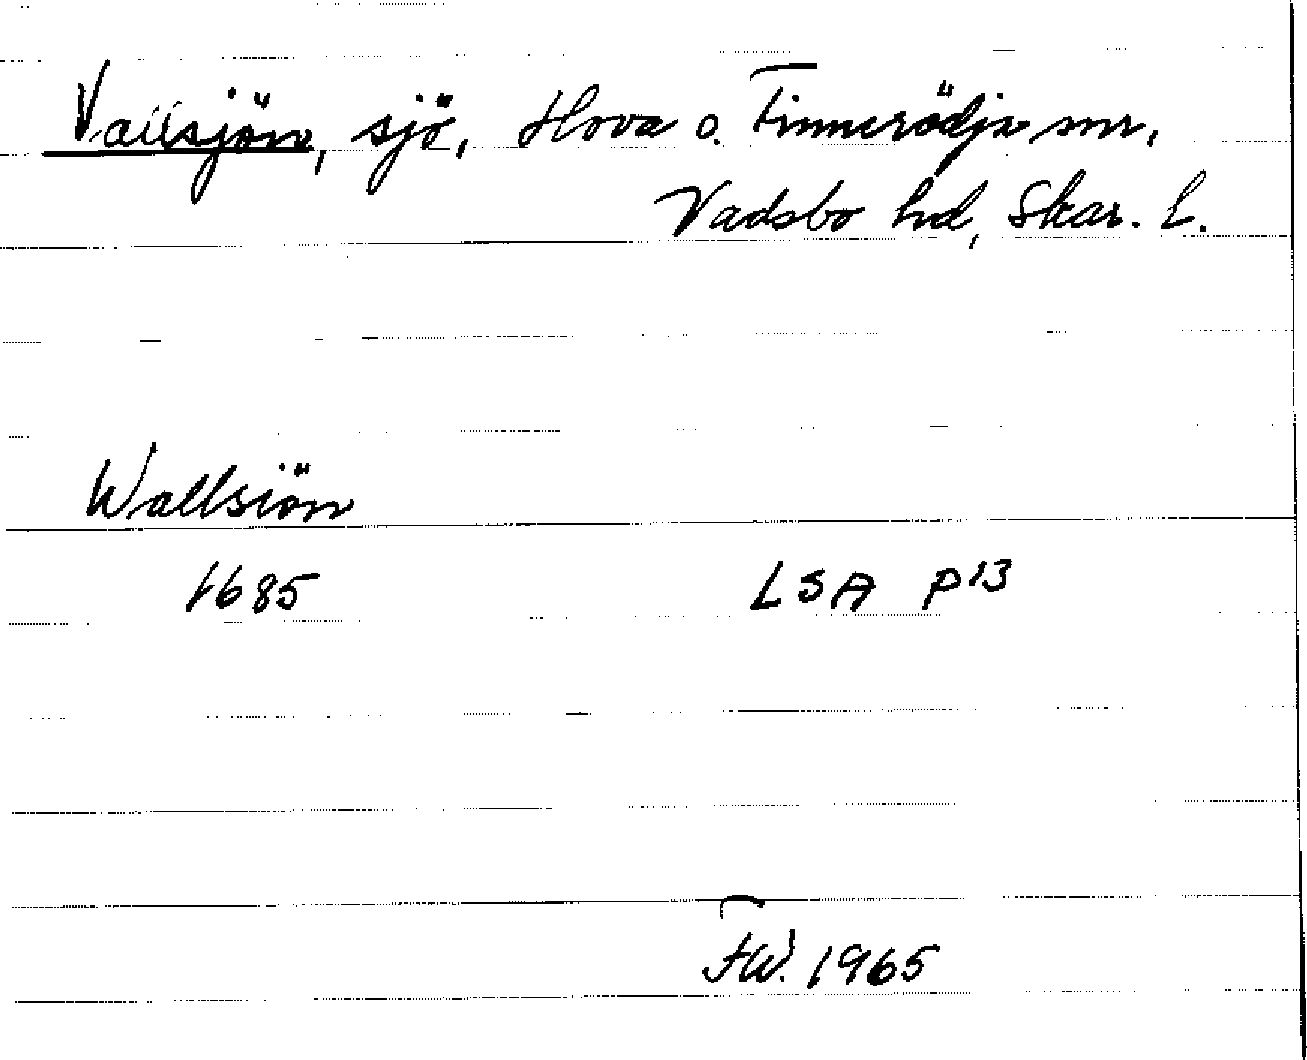 Vallsjön, sjö, Hova o. Finnerödja snr,
Vadsbo hd, Skar. L.
Wallsiön
1685 LSA P13
FW. 1965